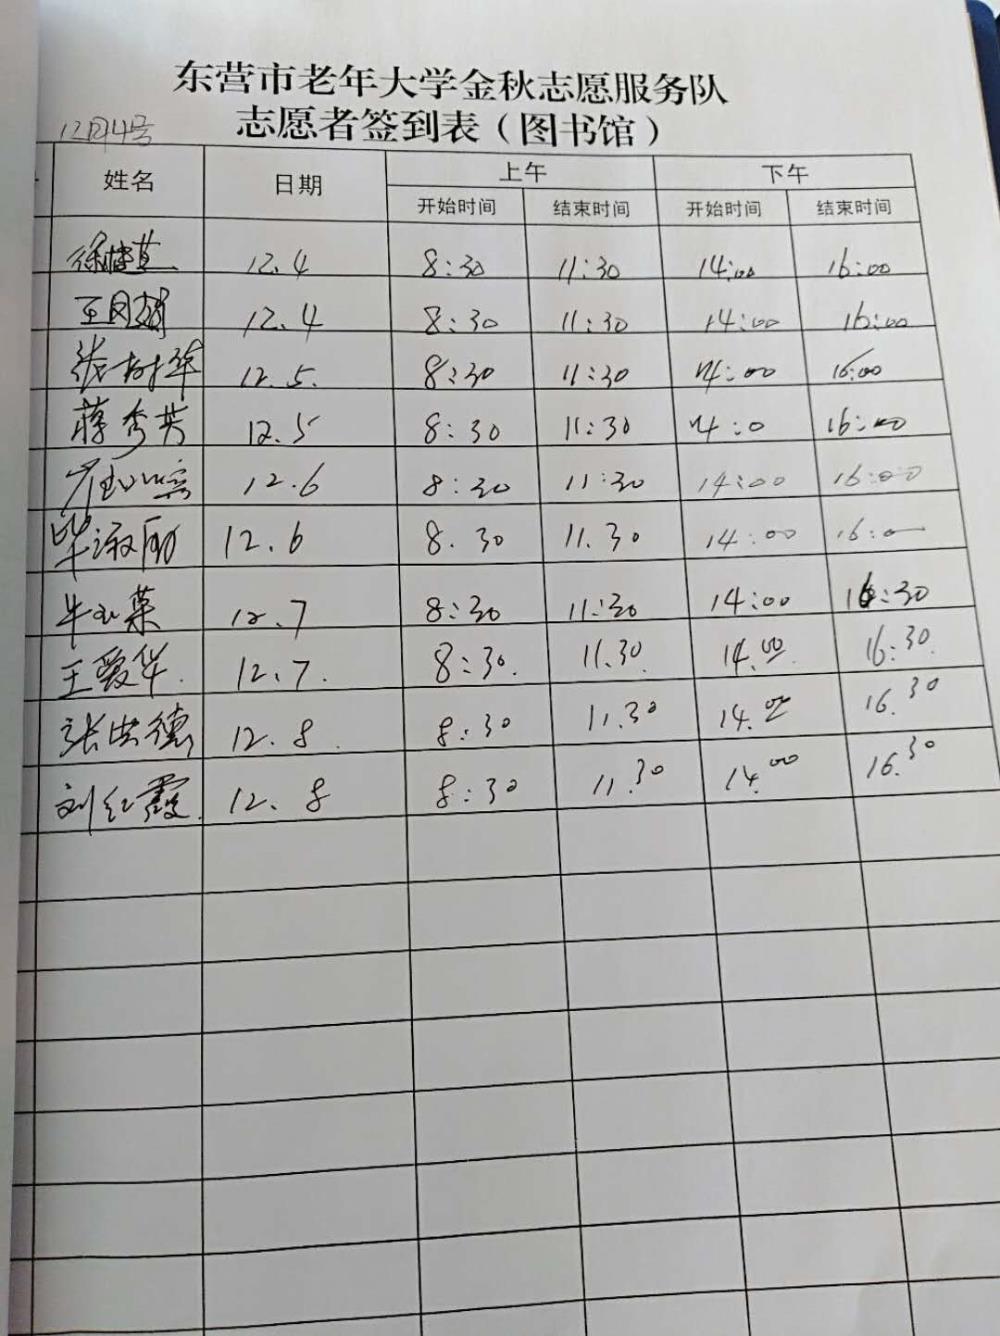 东营市老年大学金秋志愿服务队
志愿者签到表（图书馆）
12月4号
姓名 日期 上午 下午
开始时间 结束时间 开始时间 结束时间
12.4 8:30 11:30 14:00 16:00
12.4 8:30 11:30 14:00 16:00
张树华 12.5. 8:30 11:30 14:00 16:00
蒋秀芳 12.5 8:30 11:30 14:0 16:00
12.6 8:30 11:30 14:00 16:00
12.6 8.30 11.30 14:00 16:0
12.7 8:30 11:30 14:00 16:30
王爱华. 12.7. 8:30. 11.30. 14.00. 16:30.
张洪德 12.8. 8:30 11.30 14.00 16.30
刘红霞. 12.8 8:30 11.30 14.00 16.30